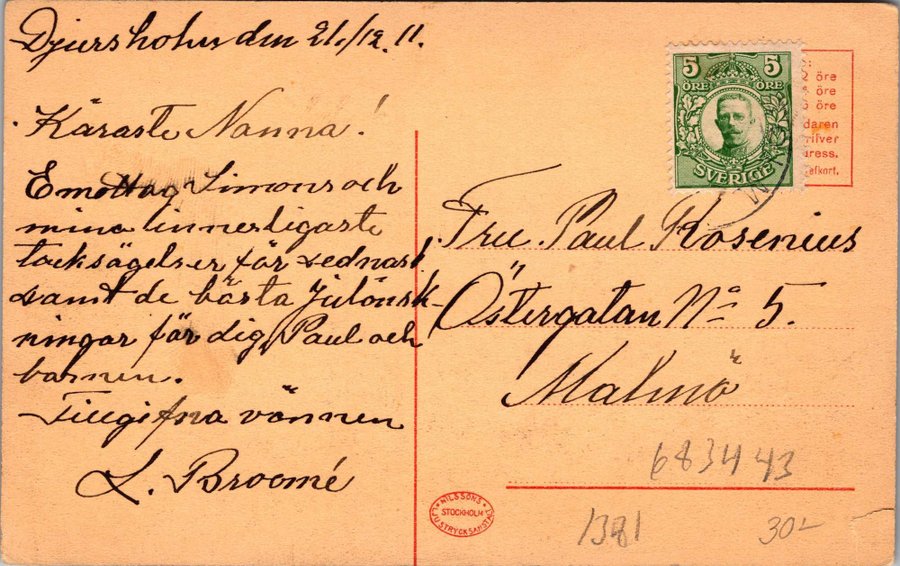 Djursholm den 21/12 11.
Käraste Nanna!
Emottag Simons och
mina innerligaste
tacksägelser för sednast
samt de bästa Julönsk-
ningar för dig, Paul och
barnen.
Tillgifna vännen
L. Broomé
5 5
ÖRE ÖRE
SVERIGE
2 öre
öre
öre
Fru Paul Rosenius
Östergatan No 5.
Malmö
683443
1381
30-
NILSSONS
STOCKHOLM
LJUSTRYCKSANSTALT